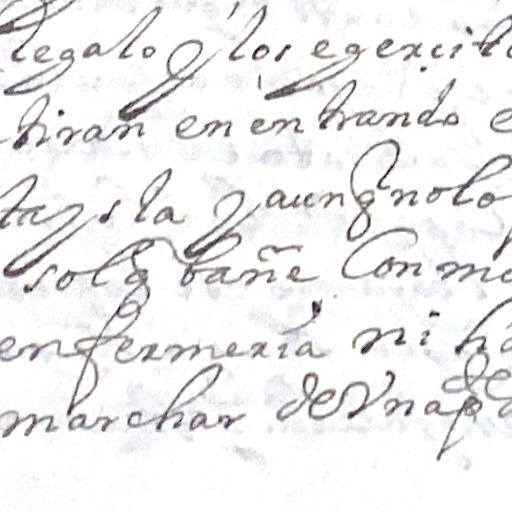 legalo y los egercito
tiran en entrando e
ta ysla y aunq̃ no lo
sol q̃ bañe Con mo
enfermeria ni ha
marchar de Vna p